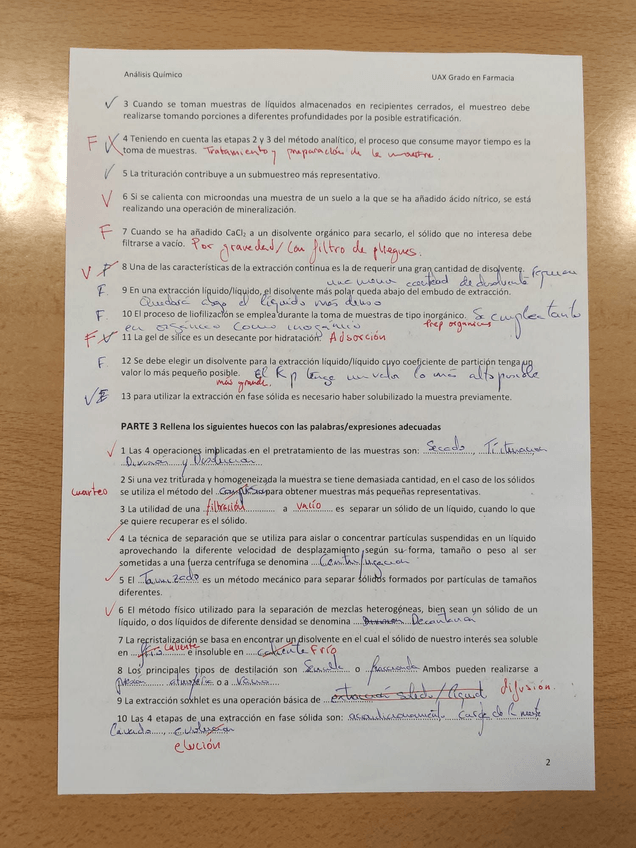 Análisis Químico UAX Grado en Farmacia
3 Cuando se toman muestras de líquidos almacenados en recipientes cerrados, el muestreo debe
realizarse tomando porciones a diferentes profundidades por la posible estratificación.
F 4 Teniendo en cuenta las etapas 2 y 3 del método analítico, el proceso que consume mayor tiempo es la
toma de muestras. Tratamiento y preparación de la muestra.
5 La trituración contribuye a un submuestreo más representativo.
V 6 Si se calienta con microondas una muestra de un suelo a la que se ha añadido ácido nítrico, se está
realizando una operación de mineralización.
F 7 Cuando se ha añadido CaCl₂ a un disolvente orgánico para secarlo, el sólido que no interesa debe
filtrarse a vacío. Por gravedad/Con filtro de pliegues.
V F 8 Una de las características de la extracción continua es la de requerir una gran cantidad de disolvente. requiere
una menor cantidad de disolvente
F. 9 En una extracción líquido/líquido, el disolvente más polar queda abajo del embudo de extracción.
Quedará abajo el líquido más denso
F. 10 El proceso de liofilización se emplea durante la toma de muestras de tipo inorgánico. Se emplea tanto
en orgánico como inorgánico
F V 11 La gel de sílice es un desecante por hidratación. Adsorción
F. 12 Se debe elegir un disolvente para la extracción líquido/líquido cuyo coeficiente de partición tenga un
valor lo más pequeño posible. El Kp tenga un valor lo más alto posible
más grande.
V 13 para utilizar la extracción en fase sólida es necesario haber solubilizado la muestra previamente.
PARTE 3 Rellena los siguientes huecos con las palabras/expresiones adecuadas
1 Las 4 operaciones implicadas en el pretratamiento de las muestras son: Secado, Trituración
División y Disolución
2 Si una vez triturada y homogeneizada la muestra se tiene demasiada cantidad, en el caso de los sólidos
cuarteo se utiliza el método del para obtener muestras más pequeñas representativas.
3 La utilidad de una filtración a vacío es separar un sólido de un líquido, cuando lo que
se quiere recuperar es el sólido.
4 La técnica de separación que se utiliza para aislar o concentrar partículas suspendidas en un líquido
aprovechando la diferente velocidad de desplazamiento según su forma, tamaño o peso al ser
sometidas a una fuerza centrífuga se denomina Centrifugación
5 El Tamizado es un método mecánico para separar sólidos formados por partículas de tamaños
diferentes.
6 El método físico utilizado para la separación de mezclas heterogéneas, bien sean un sólido de un
líquido, o dos líquidos de diferente densidad se denomina División Decantación
7 La recristalización se basa en encontrar un disolvente en el cual el sólido de nuestro interés sea soluble
en frío caliente e insoluble en caliente Frío
8 Los principales tipos de destilación son Sencilla o fraccionada Ambos pueden realizarse a
presión atmosférica o a vacío
9 La extracción soxhlet es una operación básica de extracción sólido/líquido difusión.
10 Las 4 etapas de una extracción en fase sólida son: acondicionamiento carga de
Lavado
elución
2